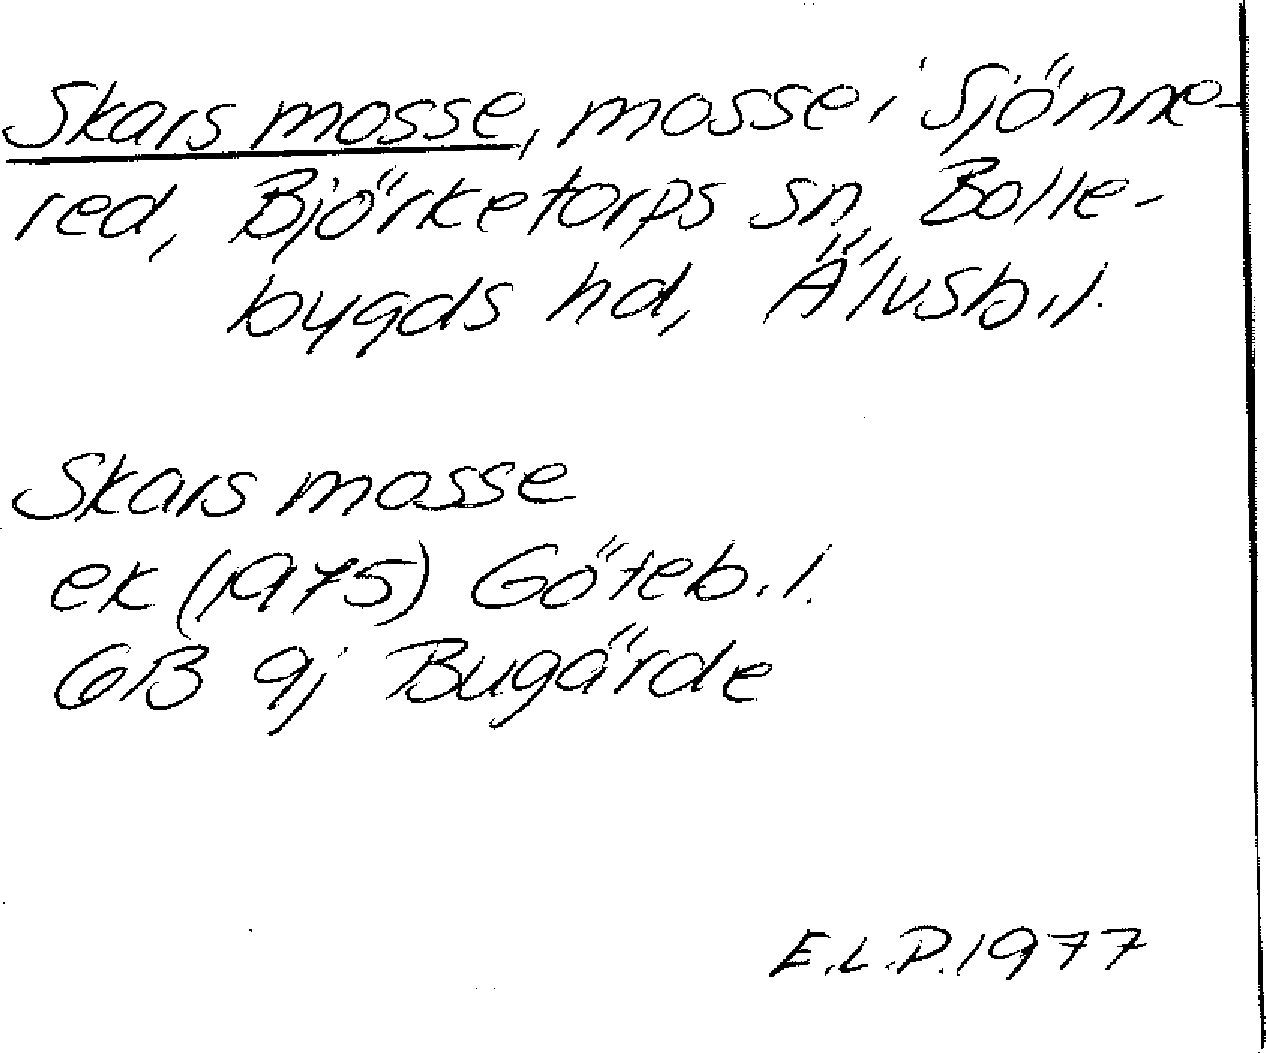 Skars mosse, mosse i Sjönne-
red, Björketorps sn, Bolle-
bygds hd, Älvsb.l.
Skars mosse
ek (1975) Göteb.l.
GB 9j Bugärde
E.L.P. 1977